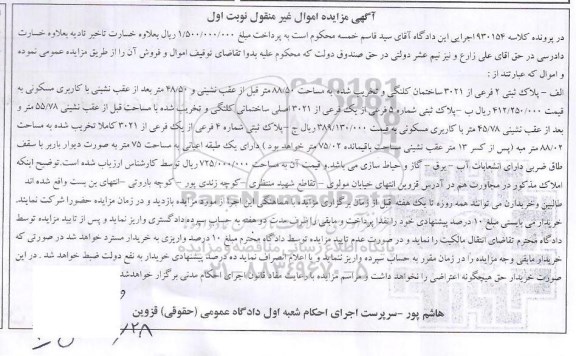 آگهی مزایده اموال غیر منقول نوبت اول
در پرونده کلاسه ۹۳۰۱۵۴ اجرایی این دادگاه آقای سید قاسم خمسه محکوم است به پرداخت مبلغ ۱/۵۰۰/۰۰۰/۰۰۰ ریال بعلاوه خسارت تاخیر تادیه بعلاوه خسارت
دادرسی در حق اقای علی زارع و نیز نیم عشر دولتی در حق صندوق دولت که محکوم علیه بدوا تقاضای توقیف اموال و فروش آن را از طریق مزایده عمومی نموده
و اموال که عبارتند از :
الف - پلاک ثبتی ۲ فرعی از ۳۰۲۱ ساختمان کلنگی و تخریب شده به مساحت ۸۸/۵۰ متر قبل از عقب نشینی و ۴۸/۵۰ متر بعد از عقب نشینی با کاربری مسکونی به
قیمت ۴۱۲/۲۵۰/۰۰۰ ریال ب -پلاک ثبتی شماره ۵ فرعی از یک فرعی از ۳۰۲۱ اصلی ساختمانی کلنگی و تخریب شده با مساحت قبل از عقب نشینی ۵۵/۷۸ متر و
بعد از عقب نشینی ۴۵/۷۸ متر با کاربری مسکونی به قیمت ۳۸۹/۱۳۰/۰۰۰ ریال ج -پلاک ثبتی شماره ۴ فرعی از یک فرعی از ۳۰۲۱ کاملا تخریب شده به مساحت
۸۸/۰۲ متر مربه (پس از کسر ۱۳ متر عقب نشینی مساحت باقیمانده ۷۵/۰۲ متر خواهد بود ) دارای یک طبقه اعیانی به مساحت ۷۵ متر به صورت دیوار باربر با سقف
طاق ضربی دارای انشعابات آب - برق - گاز و حیاط سازی می باشد و قیمت آن به مساحت ۷۲۵/۰۰۰/۰۰۰ ریال توسط کارشناس ارزیاب شده است. توضیح اینکه
املاک مذکور در مجاورت هم در آدرس قزوین انتهای خیابان مولوی - تقاطع شهید منتظری - کوچه زندی پور - کوچه باروتی -انتهای بن بست واقع شده اند
طالبین وخریداران می توانند همه روزه تا یک هفته قبل از زمان برگزاری مزایده با هماهنگی این اجرا از مورد مزایده بازدید و در زمان مزایده حضورا شرکت نمایند.
خریدار می بایستی مبلغ ۱۰ درصد پیشنهادی خود را نقدا پرداخت و مابقی را ظرف مدت دو هفته به حساب سپرده دادگستری واریز نماید و پس از تایید مزایده توسط
دادگاه محترم تقاضای انتقال مالکیت را نماید و در صورت عدم تایید مزایده توسط دادگاه محترم مبلغ ۱۰ درصد واریزی به خریدار مسترد خواهد شد در صورتی که
خریدار مابقی وجه مزایده را در زمان مقرر به حساب سپرده واریز ننماید و یا اعلام انصراف نماید ده درصد پیشنهادی خریدار به نفع دولت ضبط خواهد شد . در این
صورت خریدار حق هیچگونه اعتراضی را نخواهد داشت و مراسم مزایده با رعایت مفاد قانون اجرای احکام مدنی برگزار خواهدشد
هاشم پور -سرپرست اجرای احکام شعبه اول دادگاه عمومی (حقوقی) قزوین